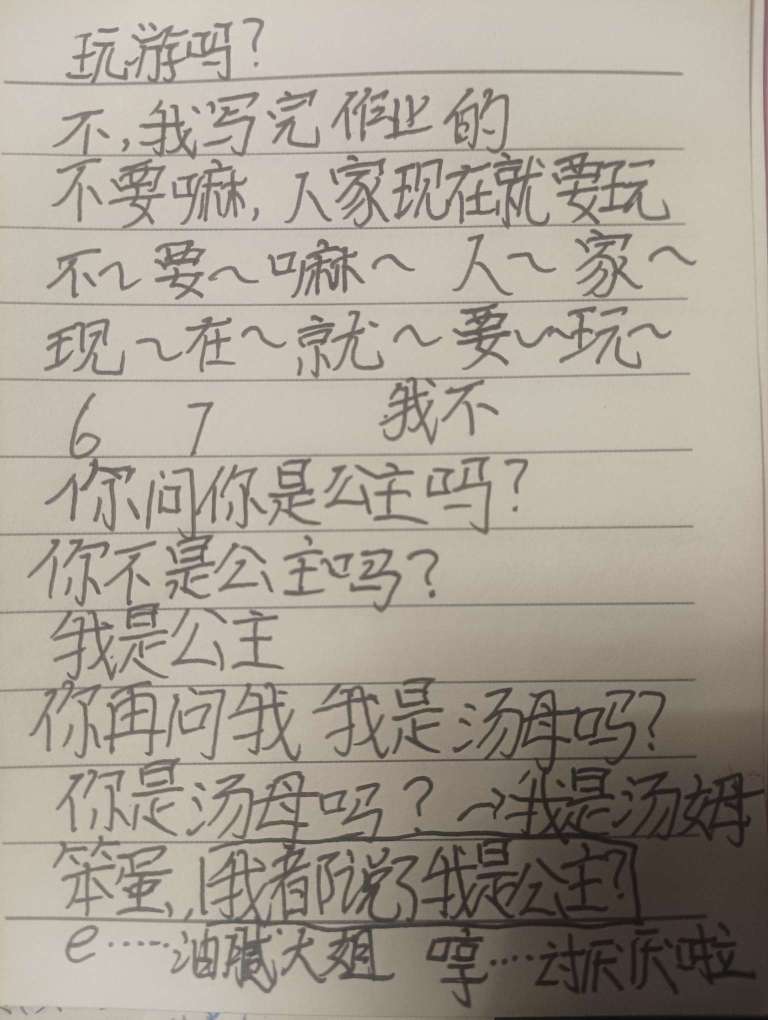 玩游吗?
不,我写完作业的
不要嘛,人家现在就要玩
不~要~嘛~ 人~家~
现~在~就~要~玩~
6 7 我不
你问你是公主吗?
你不是公主吗?
我是公主
你再问我 我是汤母吗?
你是汤母吗?→我是汤姆
笨蛋,我都说了我是公主?
e……油腻大姐 哼…讨厌厌啦